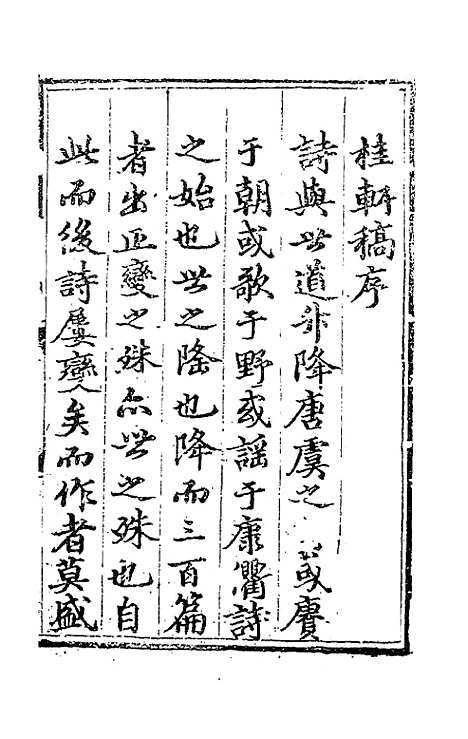 桂軒稿序
詩與世道升降唐虞之世或賡
于朝或歌于野或謡于康衢詩
之始也世之隆也降而三百篇
者出正變之殊亦世之殊也自
此而後詩屢變矣而作者莫盛